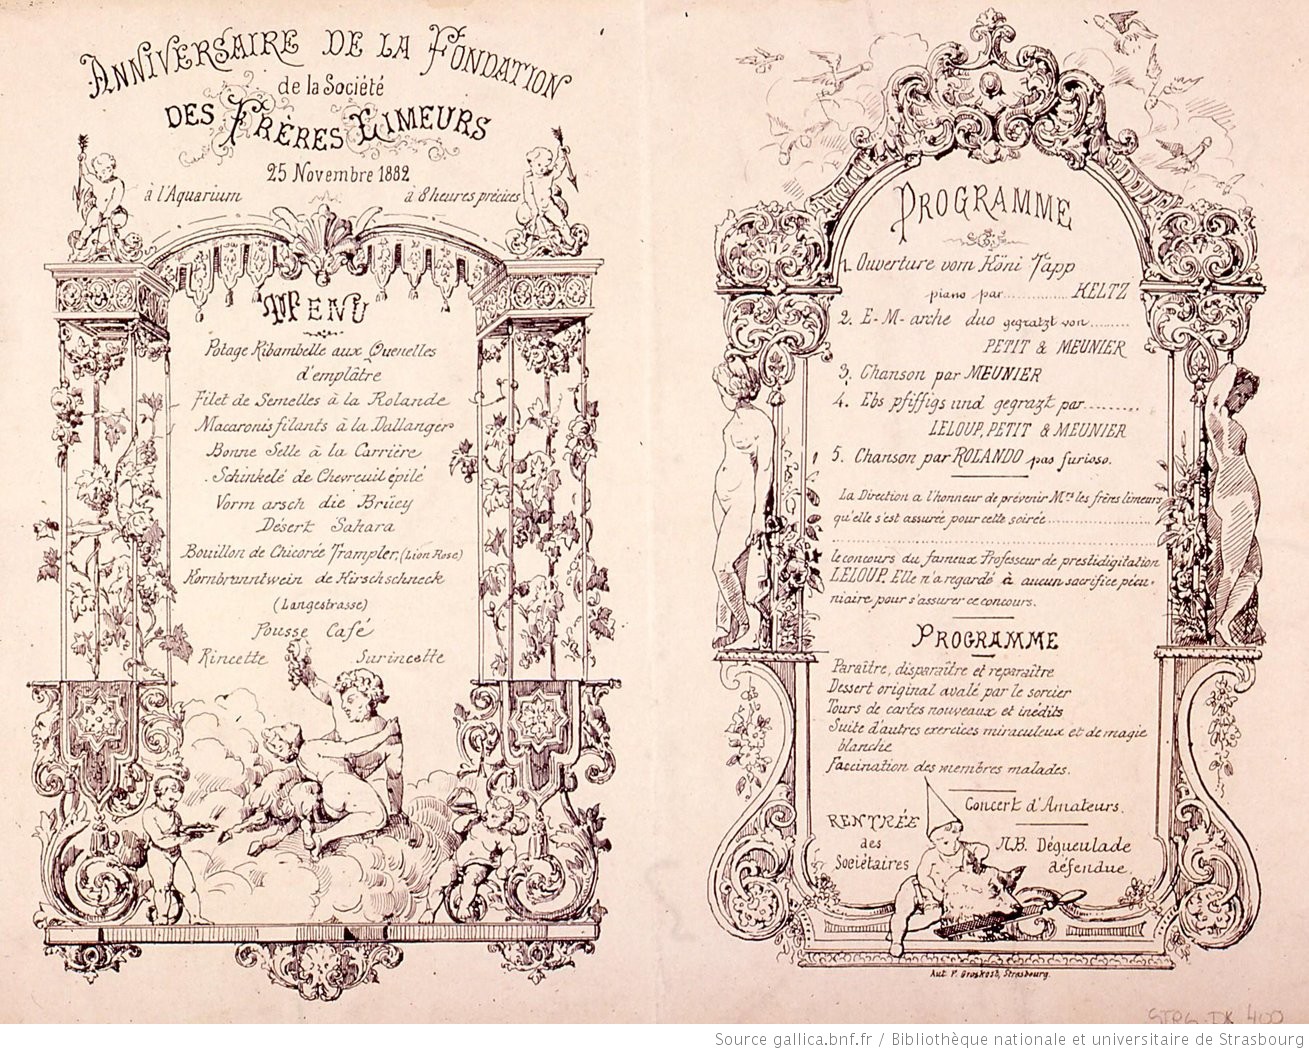 ANNIVERSAIRE DE LA FONDATION
de la Société
DES FRÈRES LIMEURS
25 Novembre 1882
à l'Aquarium à 8 heures précises
MENU
Potage Kibambelle aux Quenelles
d'emplâtre
Filet de Semelles à la Rolande
Macaronis filants à la Dallanger
Bonne Selle à la Carrière
Schinkelé de Chevreuil épilé
Vorm arsch die Briey
Désert Sahara
Bouillon de Chicorée Trampler, (Lion Rose)
Kornbranntwein de Hirschschneck
(Langestrasse)
Pousse Café
Rincette Surincette
PROGRAMME
1. Ouverture vom Köni Tapp
piano par............... KELTZ
2. E-M-arche duo gegratzt von........
PETIT & MEUNIER
3. Chanson par MEUNIER
4. Ebs pfiffigs und gegrazt par.........
LELOUP, PETIT & MEUNIER
5. Chanson par ROLANDO pas furioso.
La Direction a l'honneur de prévenir Mrs les frères limeurs
qu'elle s'est assurée pour cette soirée......................
le concours du fameux Professeur de prestidigitation
LELOUP. Elle n'a regardé à aucun sacrifice pécu-
niaire pour s'assurer ce concours.
PROGRAMME
Paraître, disparaître et reparaître
Dessert original avalé par le sorcier
Tours de cartes nouveaux et inédits
Suite d'autres exercices miraculeux et de magie
blanche
Faccination des membres malades.
Concert d'Amateurs.
RENTRÉE
des
Sociétaires
N.B. Dégueulade
défendue.
Aut. F. Groskost, Strasbourg.
Source gallica.bnf.fr / Bibliothèque nationale et universitaire de Strasbourg